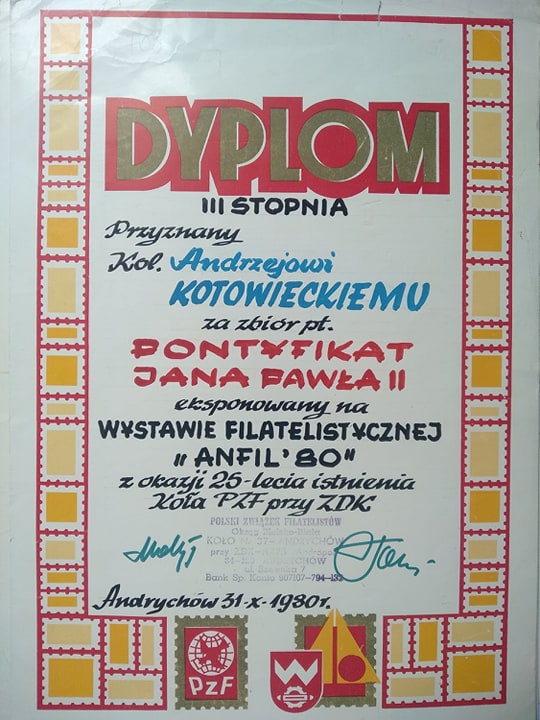 DYPLOM
III STOPNIA
Przyznany
Kol. Andrzejowi
KOTOWIECKIEMU
za zbiór pt.
PONTYFIKAT
JANA PAWŁA II
eksponowany na
WYSTAWIE FILATELISTYCZNEJ
„ANFIL'80"
z okazji 25-lecia istnienia
Koła PZF przy ZDK
POLSKI ZWIĄZEK FILATELISTÓW
Okręg Bielsko-Biała
KOŁO Nr 37- ANDRYCHÓW
przy ZDK
ANDRYCHÓW
Bank Sp. Konto 907107-794-132
Andrychów 31-X-1980r.
PZF